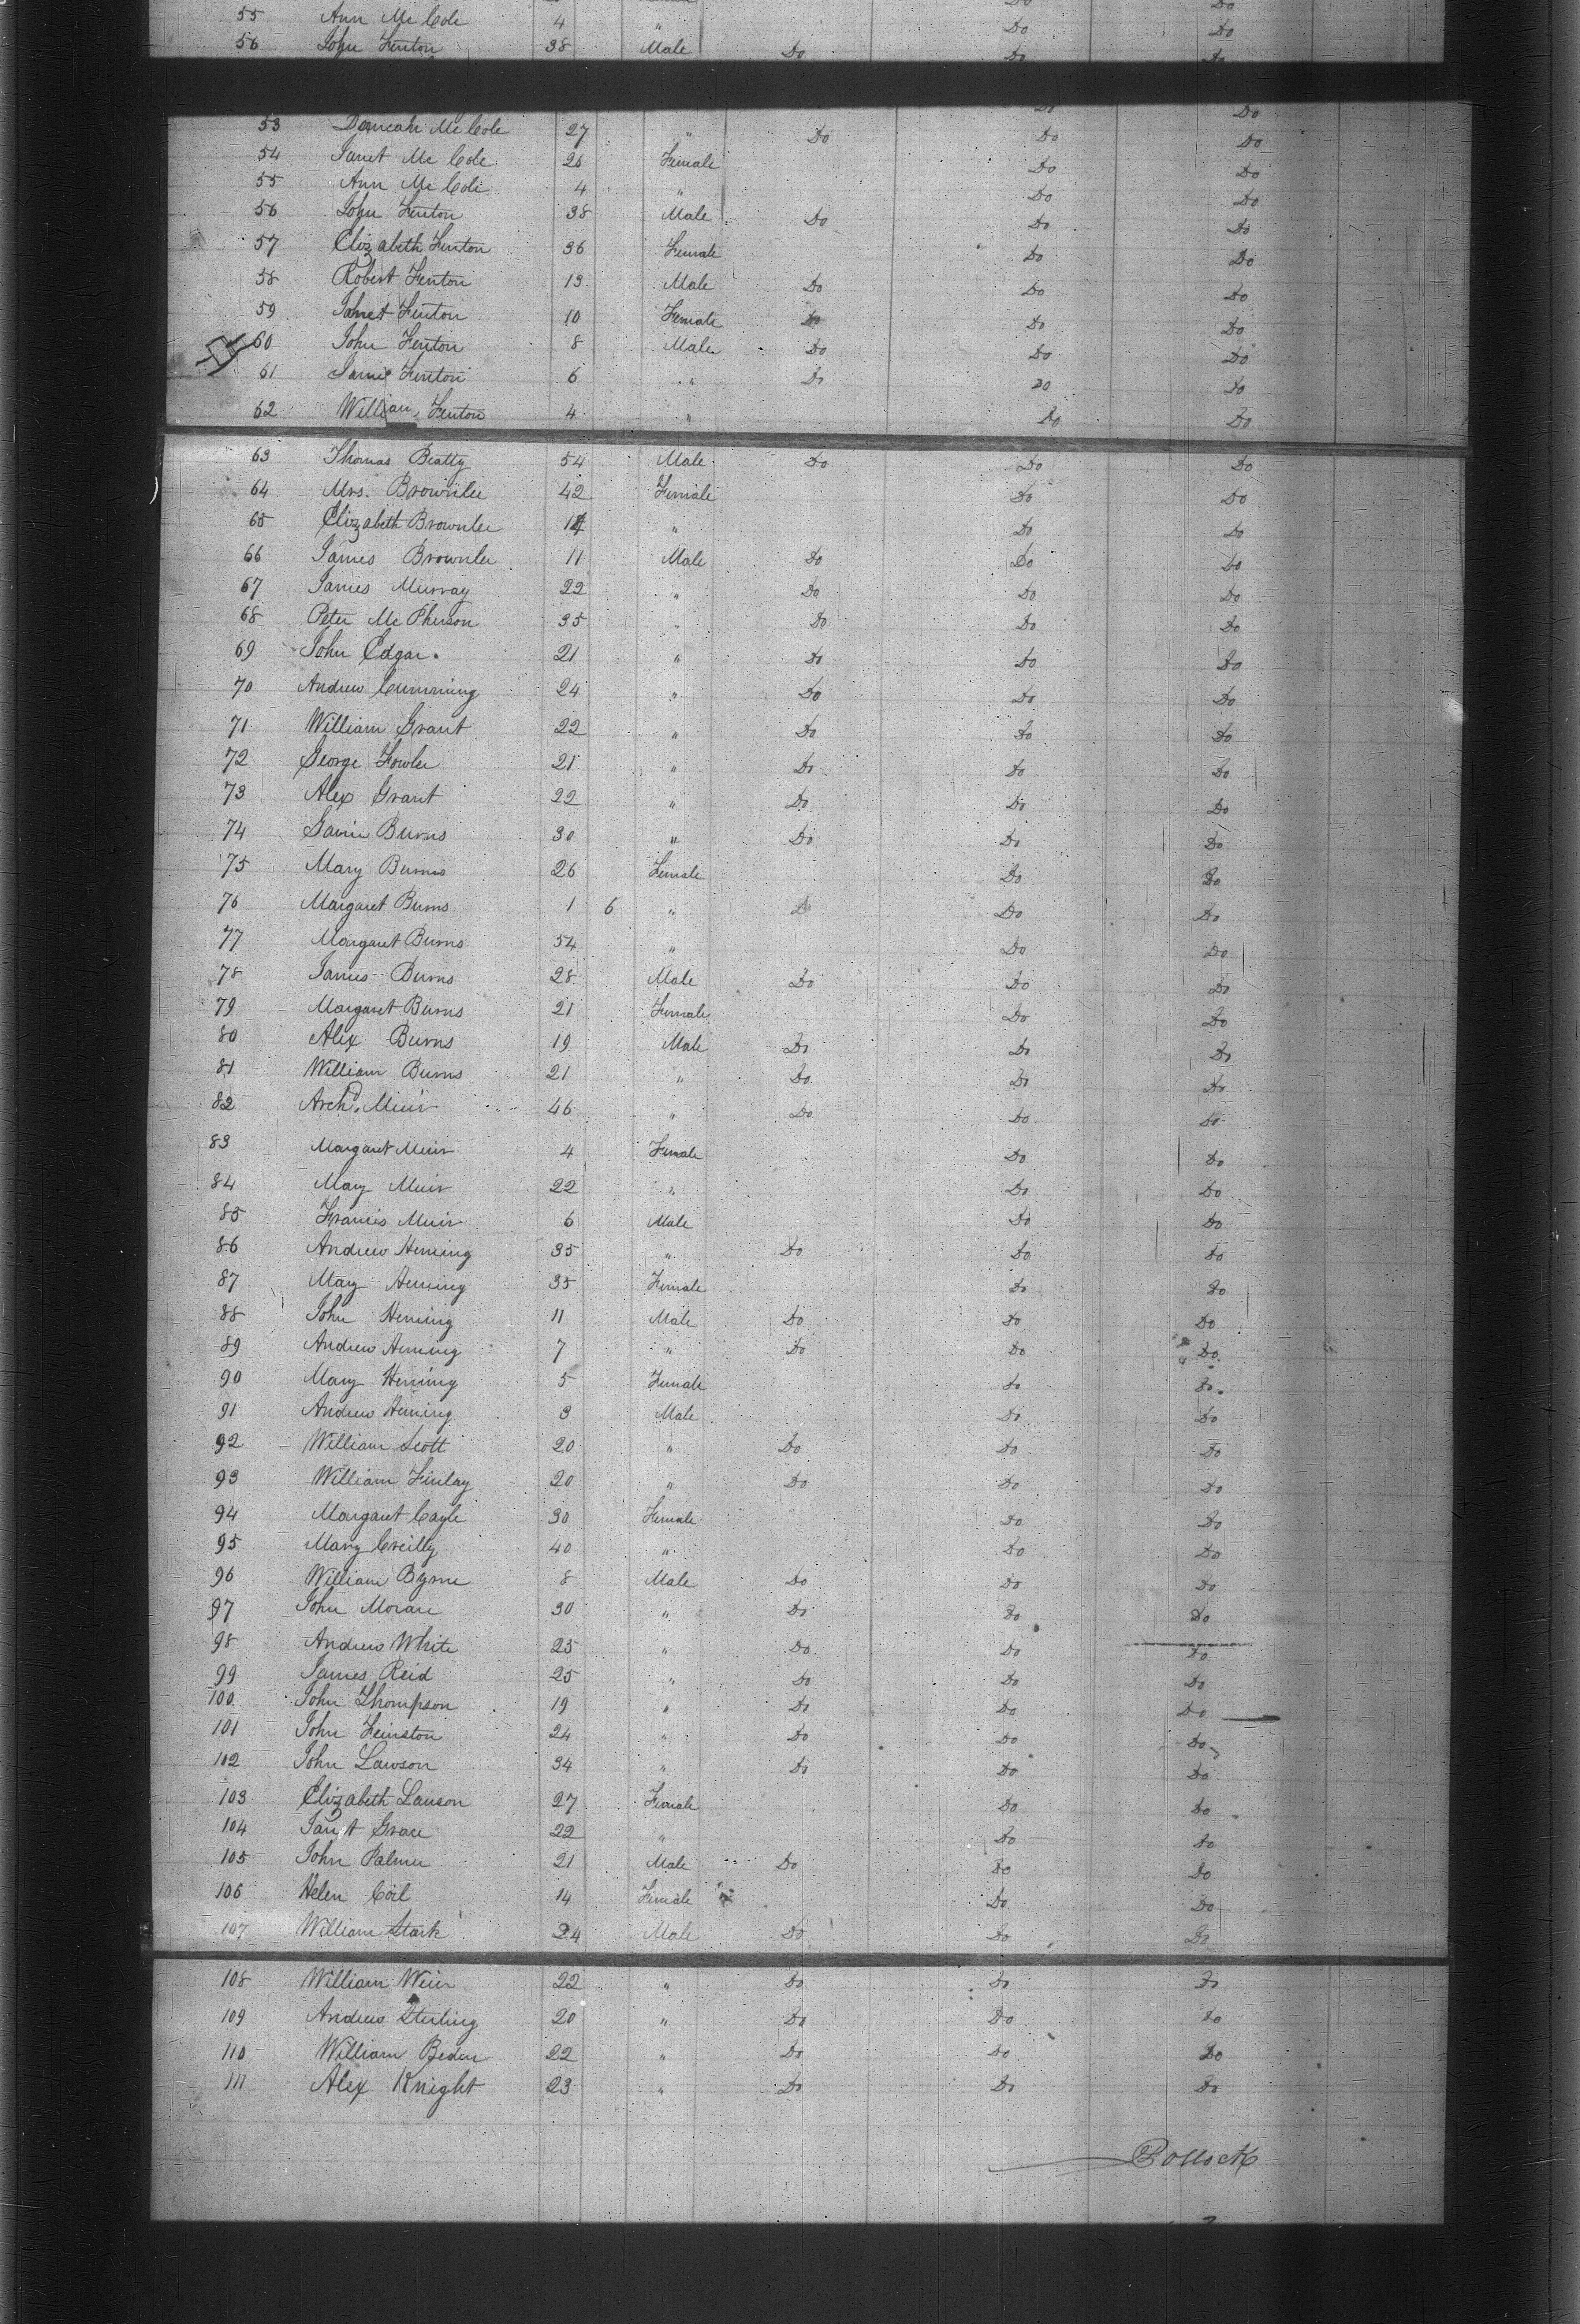 55 Ann Mc Cole 4 " Do Do
56 John Fenton 38 Male Do Do Do
53 Duncan Mc Cole 27 " Do Do Do
54 Janet Mc Cole 26 Female Do Do
55 Ann Mc Cole 4 " Do Do
56 John Fenton 38 Male Do Do Do
57 Elizabeth Fenton 36 Female Do Do
58 Robert Fenton 13 Male Do Do Do
59 Janet Fenton 10 Female Do Do Do
60 John Fenton 8 Male Do Do Do
61 James Fenton 6 " Do Do Do
62 William Fenton 4 " Do Do
63 Thomas Beatty 54 Male Do Do Do
64 Mrs. Brownlee 42 Female Do Do
65 Elizabeth Brownlee 14 " Do Do
66 James Brownlee 11 Male Do Do Do
67 James Murray 22 " Do Do Do
68 Peter Mc Pherson 35 " Do Do Do
69 John Edgar. 21 " Do Do Do
70 Andrew Cumming 24 " Do Do Do
71 William Grant 22 " Do Do Do
72 George Fowler 21 " Do Do Do
73 Alex Grant 22 " Do Do Do
74 Gavin Burns 30 " Do Do Do
75 Mary Burns 26 Female Do Do
76 Margaret Burns 1 6 " Do Do Do
77 Margaret Burns 54 " Do Do
78 James Burns 28 Male Do Do Do
79 Margaret Burns 21 Female Do Do
80 Alex Burns 19 Male Do Do Do
81 William Burns 21 " Do Do Do
82 Archd. Muir 46 " Do Do Do
83 Margaret Muir 4 Female Do Do
84 Mary Muir 22 " Do Do
85 Francis Muir 6 Male Do Do
86 Andrew Heming 35 " Do Do Do
87 Mary Heming 35 Female Do Do
88 John Heming 11 Male Do Do Do
89 Andrew Heming 7 " Do Do Do
90 Mary Heming 5 Female Do Do
91 Andrew Heming 3 Male Do Do
92 William Scott 20 " Do Do Do
93 William Finlay 20 " Do Do Do
94 Margaret Cayle 30 Female Do Do
95 Mary Creilly 40 " Do Do
96 William Byrne 8 Male Do Do Do
97 John Moran 30 " Do Do Do
98 Andrew White 25 " Do Do Do
99 James Reid 25 " Do Do Do
100 John Thompson 19 " Do Do Do
101 John Feinston 24 " Do Do Do
102 John Lawson 34 " Do Do Do
103 Elizabeth Lawson 27 Female Do Do
104 Janet Grace 22 " Do Do
105 John Palmer 21 Male Do Do Do
106 Helen Coil 14 Female Do Do
107 William Stark 24 Male Do Do Do
108 William Weir 22 " Do Do Do
109 Andrew Sterling 20 " Do Do Do
110 William Beden 22 " Do Do Do
111 Alex Knight 23 " Do Do Do
Pollock